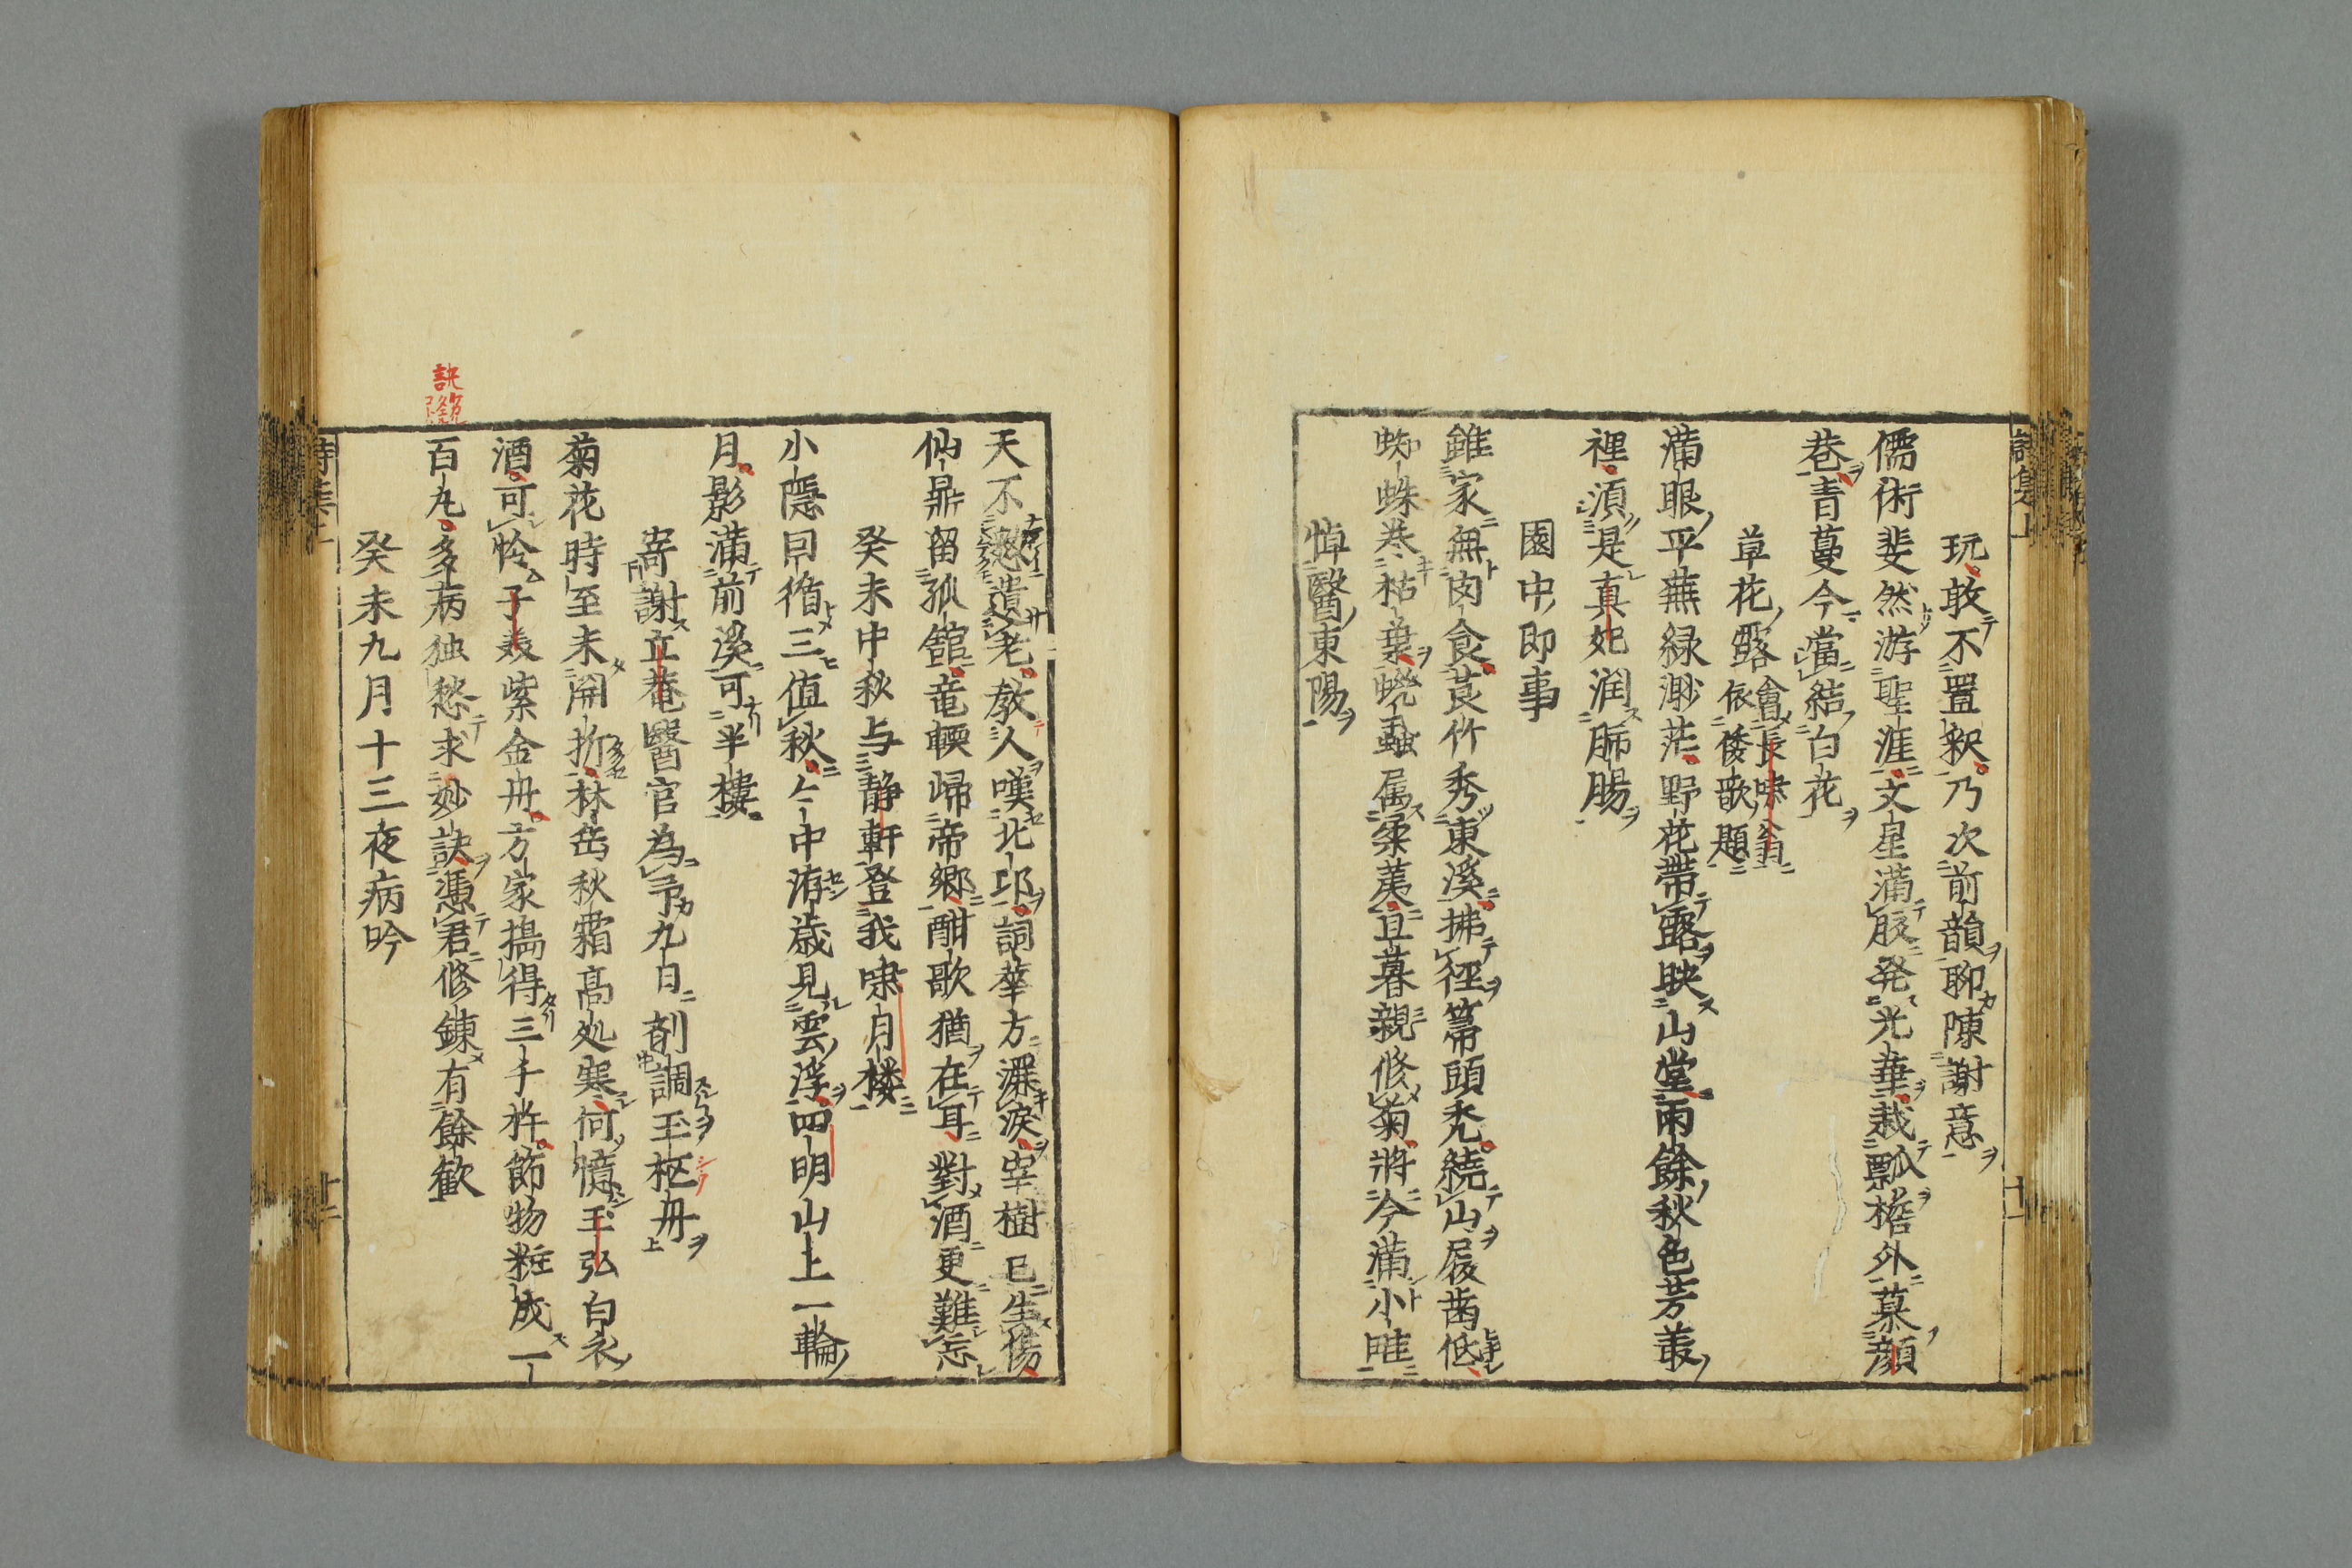 玩敢不置釈乃次前韻聊陳謝意
儒術斐然游聖涯文星満腹発光華栽瓢檐外慕顔
巷青蔓今當結白花
草花露會長嘯翁依倭歌題
満眼平蕪緑渺茫野花帶露映山堂雨餘秋色芳叢
裡須是真妃润肺腸
園中即事
雖家無肉食莨竹秀東溪拂徑箒頭禿繞山屐歯低
蜘蛛巻枯葉蟲属柔荑且暮親修菊將今満小畦
悼醫東陽
詩集上
十一
天不憖遺老教人嘆北邙詞華方灑涙宰樹已生傷
仙鼎留孤舘竜輀帰帝郷酣歌猶在耳對酒更難忘
癸未中秋与静軒登我嘯月楼
小隱同脩三值秋今中洊歳見雲浮四明山上一輪
月影満前溪可半樓
寄謝立菴醫官為予九日剤調玉枢丹
菊花時至未開折林岳秋霜高処寒何憶王弘白衣
酒可怜子美紫金丹方家搗得三千杵節物粧成一
百丸多病独愁求妙訣憑君修錬有餘歓
癸未九月十三夜病吟
訣
十二